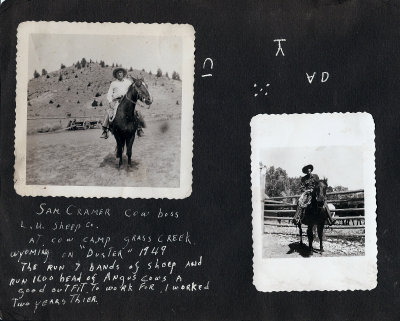 AD
SAM CRAMER COW boss
L.U. Sheep Co.
AT COW CAMP, GRASS CREEK
WYOMING ON "DUSTER" 1949
THE RUN 7 bands of sheep AND
RUN 1100 head of ANGUS COWS A
good OUTFIT TO WORK FOR, I worked
Two years Thier.